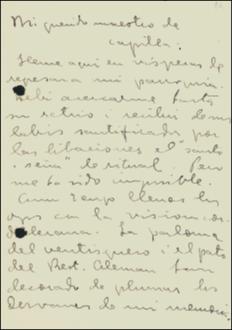 Mi querido maestro de
capilla.
Heme aquí en vísperas de
regresar a mi parroquia.
Debí acercarme hasta
su retiro i recibir de sus
labios santificados por
las libaciones el santo
i seña" de ritual. Pero
me ha sido imposible.
Aun tengo llenos los
ojos con la vision
La paloma
del ventisquero i el pato
del Rest. Aleman han
decorado de plumas los
desvanes de mi memoria.